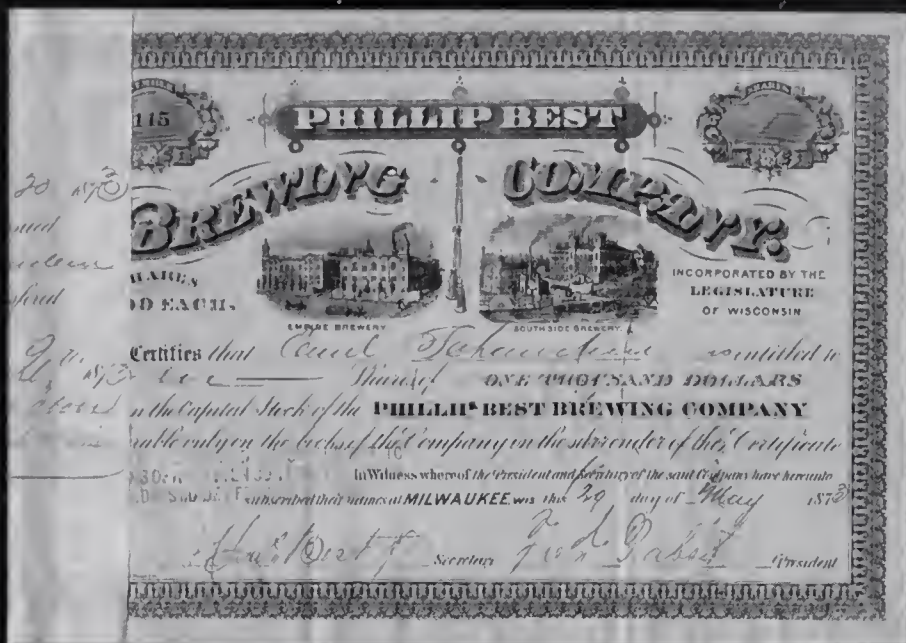 115
SHARES
PHILLIP BEST
BREWING COMPANY.
20 1873
HARES
EACH.
EMPIRE BREWERY
SOUTH SIDE BREWERY.
INCORPORATED BY THE
LEGISLATURE
OF WISCONSIN
Certifies that Emil is entitled to
Share of ONE THOUSAND DOLLARS
n the Capital Stock of the PHILLIP BEST BREWING COMPANY
rable only on the books of the Company on the surrender of this Certificate
In Witness whereof the President and Secretary of the said Company have hereunto
subscribed their names at MILWAUKEE, WIS. this 29 day of May 1873
Secretary Fred Pabst President